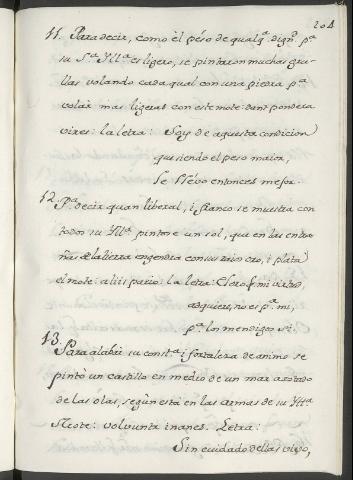 204
11. Para decir, como èl péso de qualqª. dignᵈ. pª
su Sª Yllª es ligero, se pintaron muchas gru-
llas volando cada qual con una piedra pª
volar mas ligeras con este mote: dant pondera
vires: la letra: Soy de aquesta condicion
que siendo el peso maior,
se llévo entonces mejor.
12. Pª decir quan liberal, i franco se muestra con
todos su Yllª pintore un sol, que en las entra-
ñas de la tierra engendra con sus raios oro, i plata
el mote: aliis pario: la letra: El oro mi virtud,
adquiere, no es pª mi,
pª los mendigos si.
13. Para alabar su constª i fortaleza de animo se
pintò un castillo en medio de un mar azotado
de las olas, según està en las armas de su Yllª
Mote: volvuntur inanes. Letra:
Sin cuidado dellas vivo,